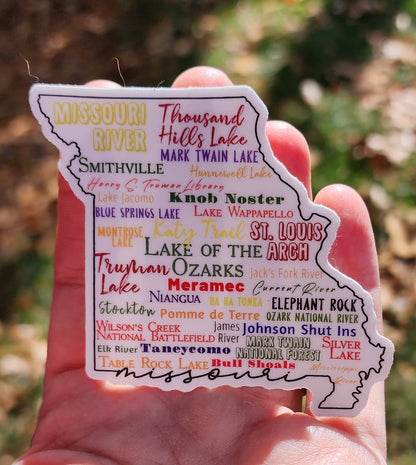 MISSOURI RIVER
Thousand Hills Lake
MARK TWAIN LAKE
SMITHVILLE
Hunnewell Lake
Harry S. Truman Library
Lake Jacomo
Knob Noster
BLUE SPRINGS LAKE
LAKE WAPPAPELLO
MONTROSE LAKE
Katy Trail
ST. LOUIS ARCH
LAKE OF THE OZARKS
Truman Lake
Jack's Fork River
Meramec
Current River
NIANGUA
HA HA TONKA
ELEPHANT ROCK
Stockton
Pomme de Terre
OZARK NATIONAL RIVER
WILSON'S CREEK NATIONAL BATTLEFIELD
James River
Johnson Shut Ins
Elk River
Taneycomo
MARK TWAIN NATIONAL FOREST
SILVER LAKE
TABLE ROCK LAKE
Bull Shoals
Mississippi River
missouri